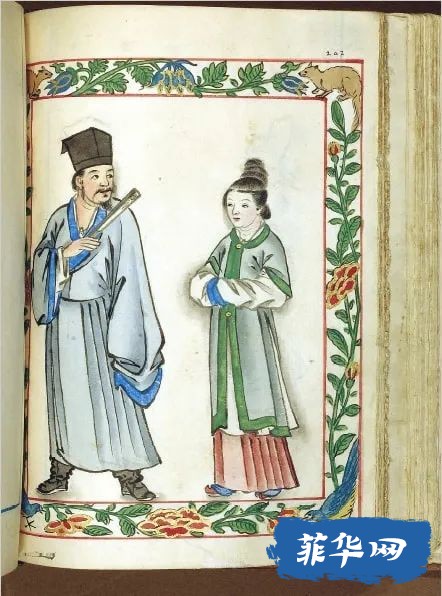 202
菲华网